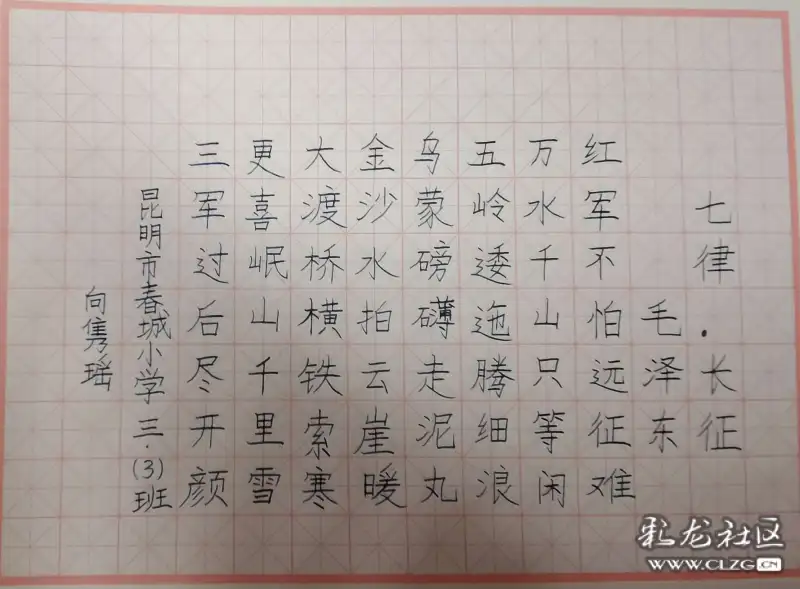 七律·长征
毛泽东
红军不怕远征难
万水千山只等闲
五岭逶迤腾细浪
乌蒙磅礴走泥丸
金沙水拍云崖暖
大渡桥横铁索寒
更喜岷山千里雪
三军过后尽开颜
昆明市春城小学三·(3)班
向隽瑶
彩龙社区
WWW.CLZG.CN